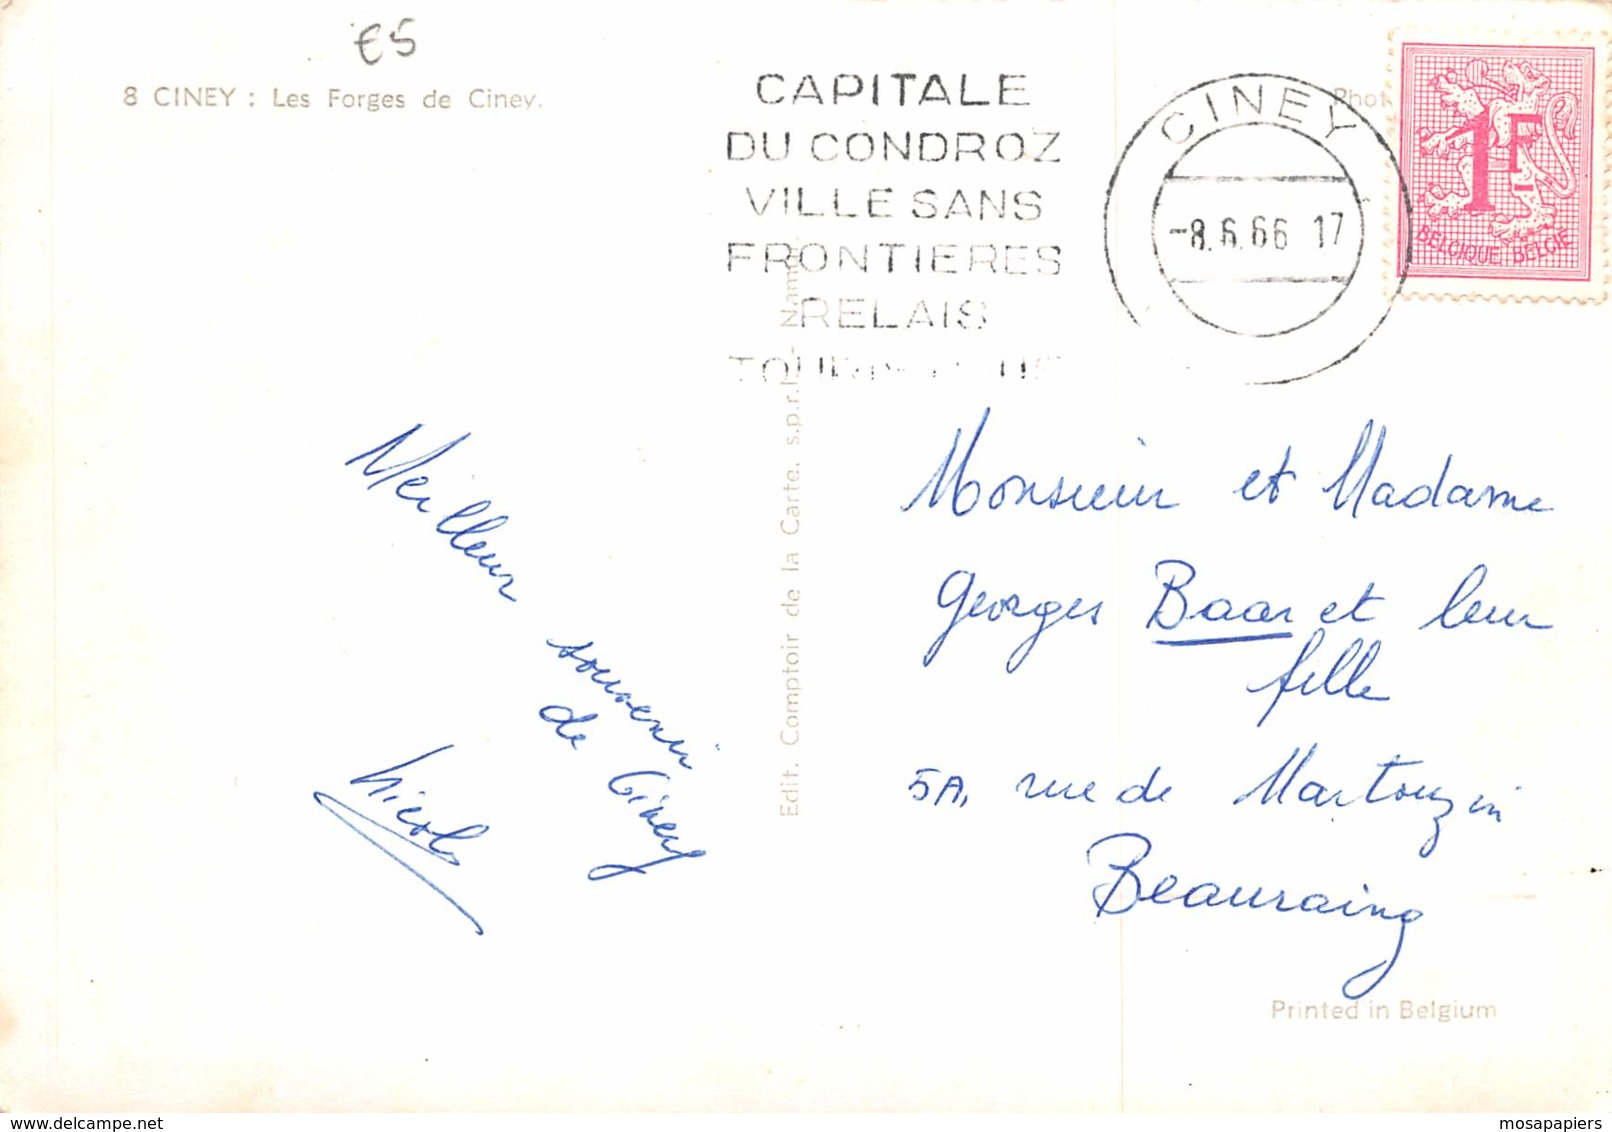 €5
8 CINEY : Les Forges de Ciney.
CAPITALE
DU CONDROZ
VILLE SANS
FRONTIERES
RELAIS
CINEY
-8.6.66 17
Phot
1F
BELGIQUE BELGIE
Meilleur
souvenir
de Ciney
Nicole
Edit. Comptoir de la Carte, s.p.r.l.
Monsieur et Madame
Georges Baar et leur
fille
5A, rue de Martouzin
Beauraing
Printed in Belgium
mosapapiers